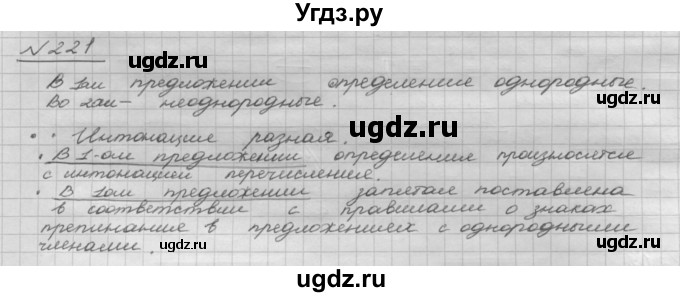 Угдз.ру
N 221
uhdz.ru
В 1ом предложении определение однородные.
Во 2ом - неоднородные.
uhdz.ru
uhdz.ru
• • Интонация разная.
• В 1-ом предложении определения произносятся
с интонацией перечисления.
uhdz.ru
• В 1ом предложении запятая поставлена
в соответствии с правилами о знаках
препинание в предложениях с однородными
членами.
uhdz.ru
uhdz.ru